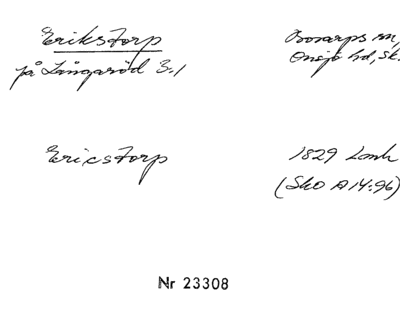 Erikstorp
Bosarps sn,
på Långaröd 3:1
Onsjö hd, Sk.
Ericstorp
1829 Lönh
(SkO A 14:96)
Nr 23308